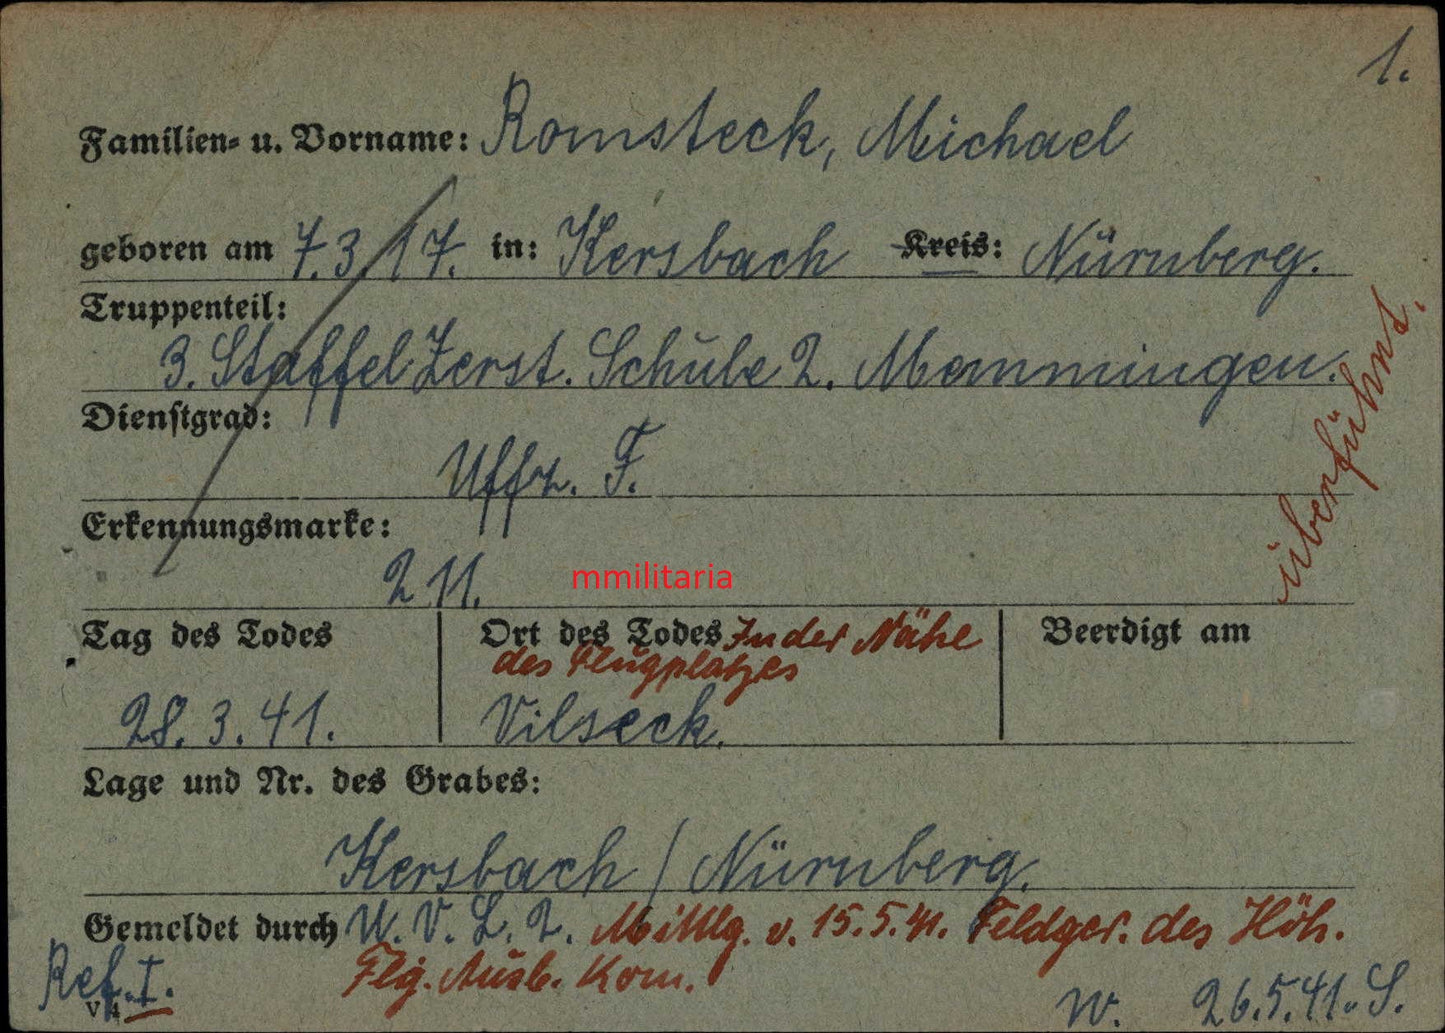 1.
Familien- u. Vorname: Romsteck, Michael
geboren am 7.3.17. in: Kersbach Kreis: Nürnberg.
Truppenteil:
3. Staffel Zerst. Schule 2. Memmingen.
überführt.
Dienstgrad:
Uffz. F.
Erkennungsmarke:
211.
mmilitaria
Tag des Todes Ort des Todes In der Nähe Beerdigt am
des Flugplatzes
28.3.41. Vilseck.
Lage und Nr. des Grabes:
Kersbach / Nürnberg.
Gemeldet durch W.V.L. 2. Mittlg. v. 15.5.41. Feldger. des Höh.
Ref. I. Flg. Ausb. Kom.
V 4 W. 26.5.41. S.